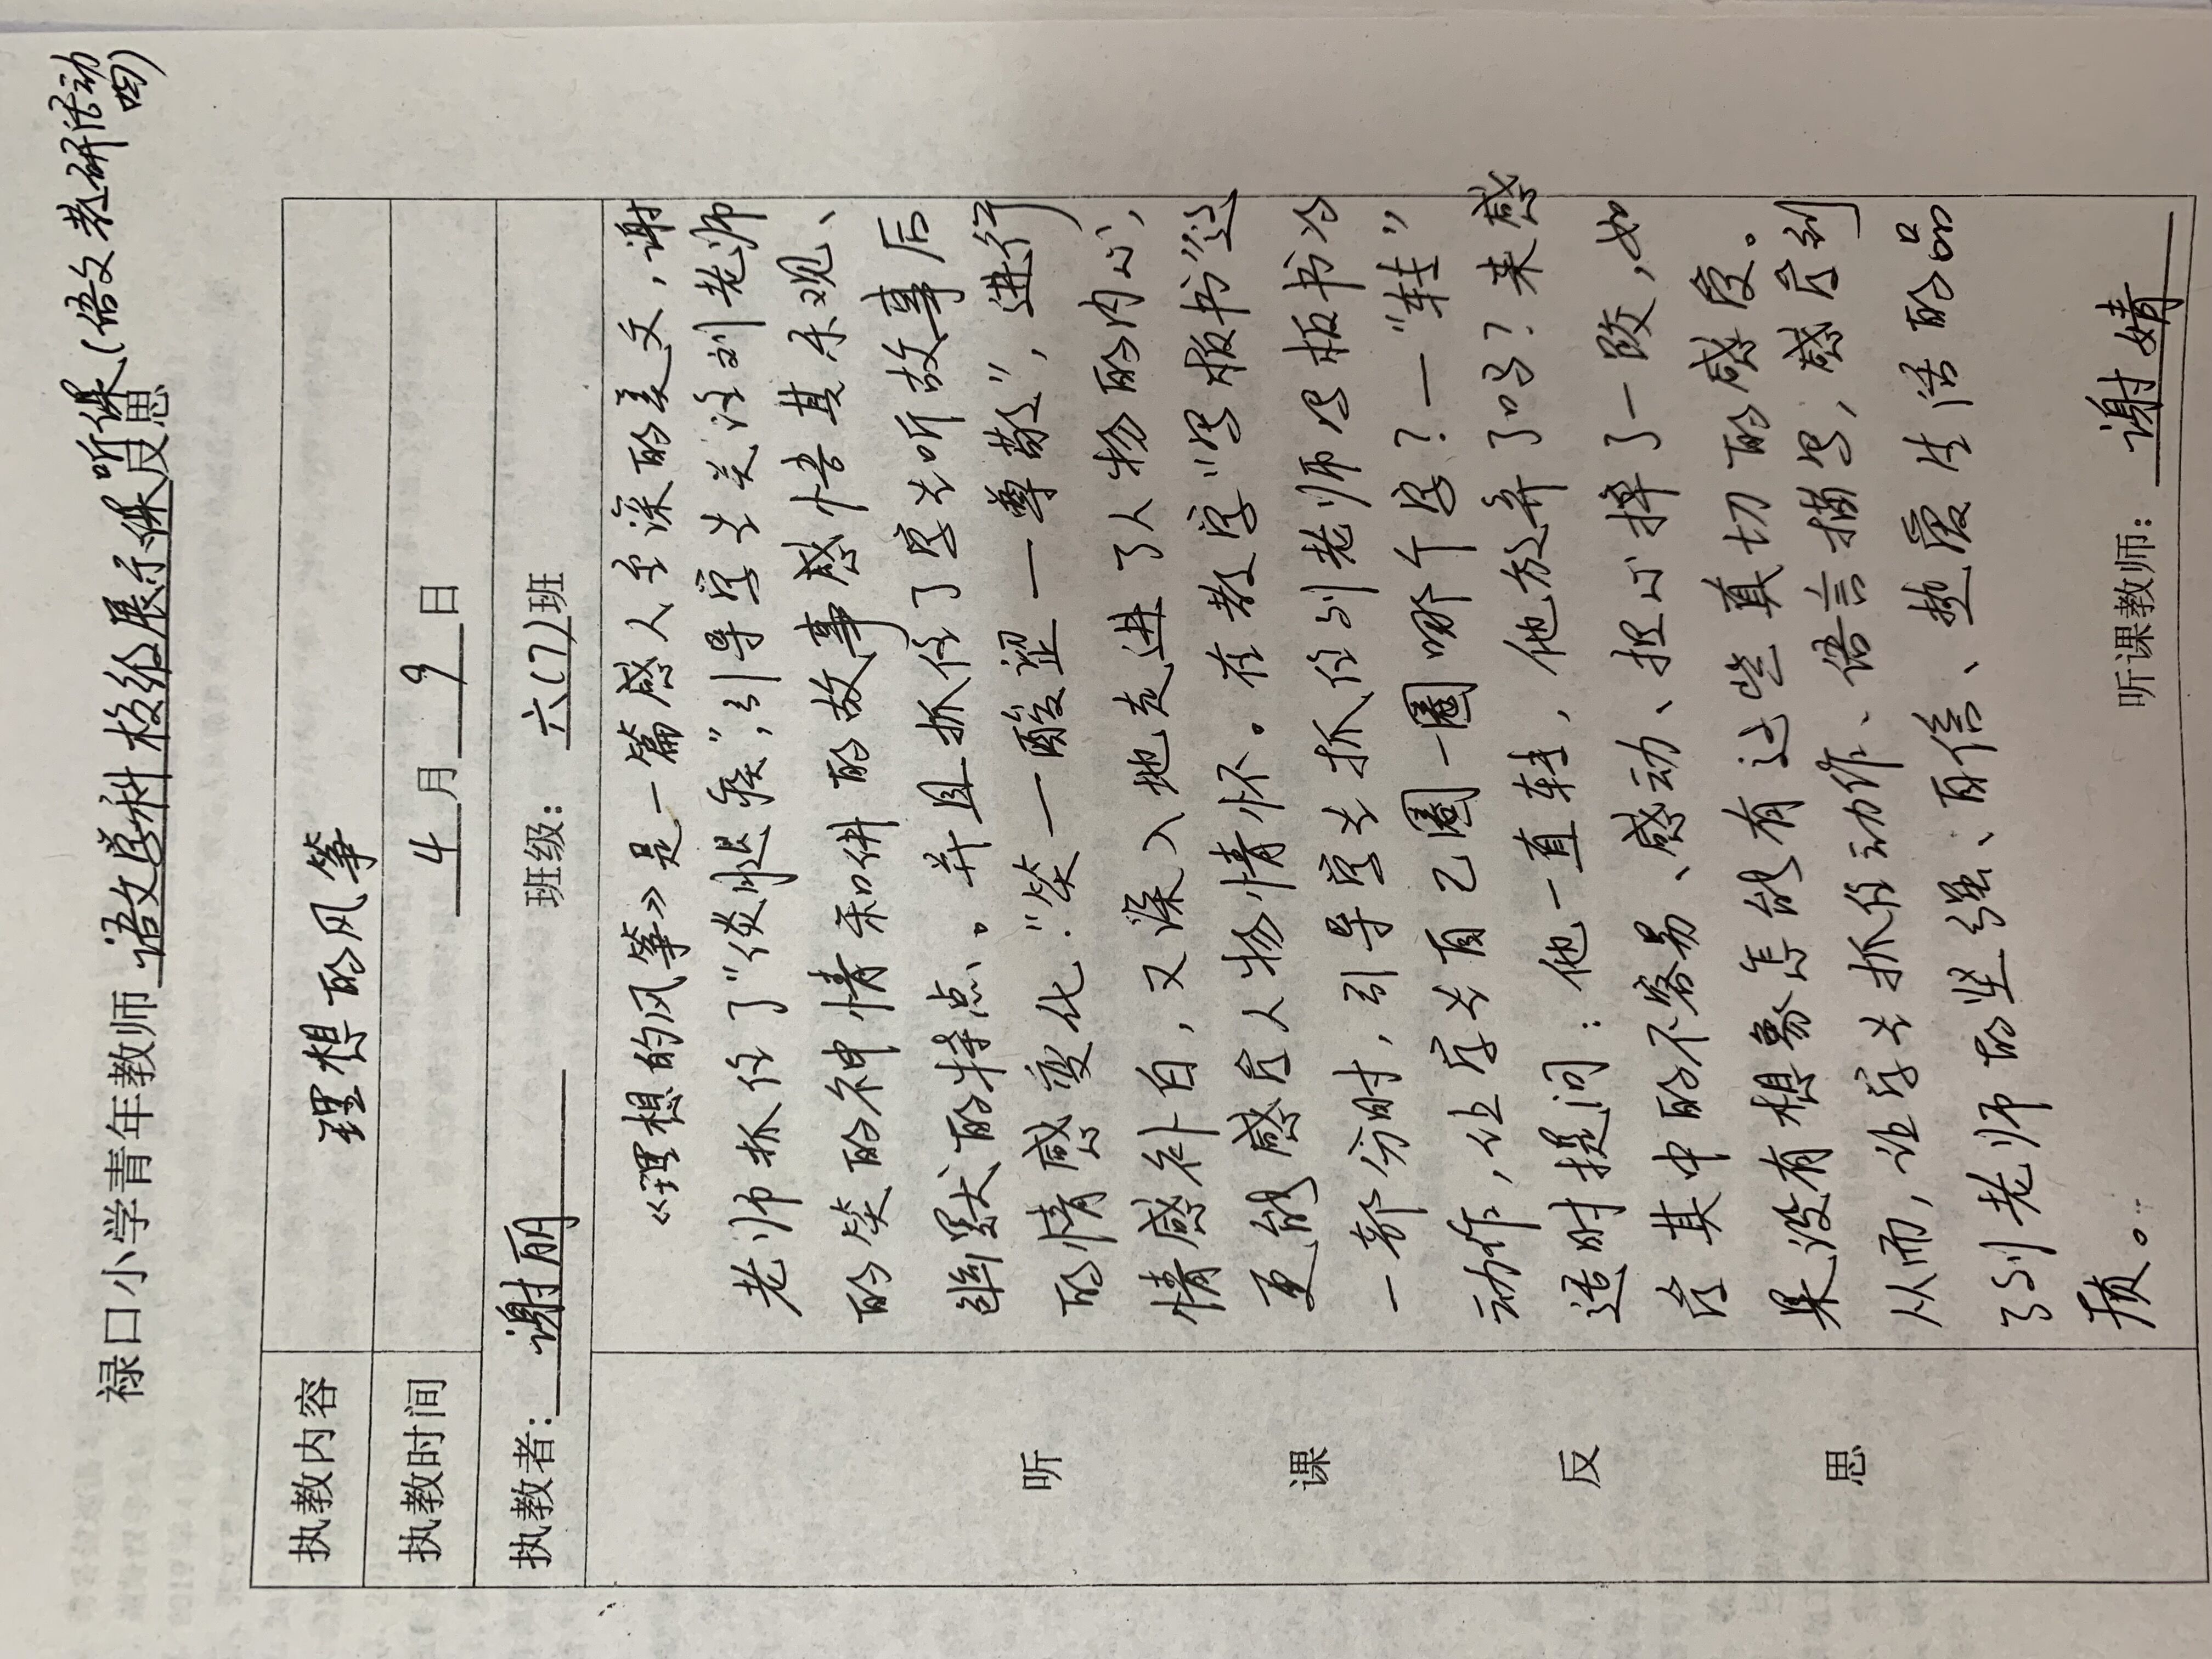 禄口小学青年教师 语文学科校级展示课听课反思(语文教研活动四)
执教内容 理想的风筝
执教时间 4月9日
执教者：谢丽 班级：六(7)班
听课反思
《理想的风筝》是一篇感人至深的美文，谢
老师抓住了“谈腿疾”，引导学生关注刘老师
的笑的神情和讲的故事感悟其乐观、
幽默的特点。并且抓住了学生听故事后
的情感变化：“笑—酸涩—尊敬”，进行
情感补白，又深入地走进了人物的内心，
更能感应人物情怀。在教学“写板书”这
一部分时，引导学生抓住刘老师写板书的
动作，让学生自己圈一圈哪个字？—“转”
适时提问：他一直转，他放弃了吗？来感
应其中的不容易、感动、担心摔了一跤，如
果没有想象怎能有这些真切的感受。
从而，让学生抓住动作、语言描写，感应到
了刘老师的坚强、自信、热爱生活的品
质。
听课教师：谢婧